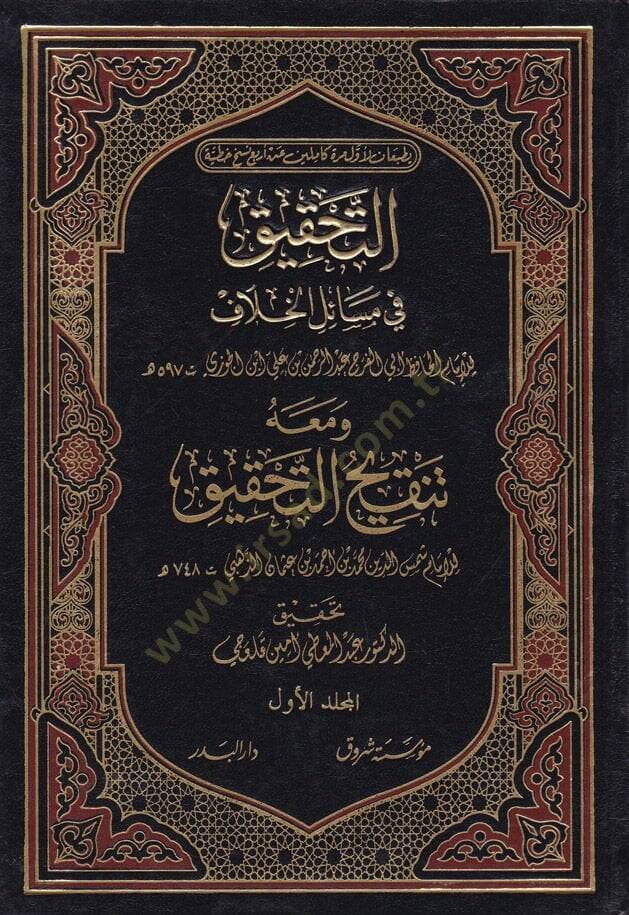 يطبعان لأول مرة كاملين عن أربع نسخ خطية
التَّحْقِيق
فِي مَسَائِلِ الْخِلَافِ
للإمام الحافظ أبي الفرج عبد الرحمن بن علي ابن الجوزي ت ٥٩٧ هـ
وَمَعَهُ
تَنْقِيحُ التَّحْقِيقِ
للإمام شمس الدين محمد بن احمد بن عثمان الذهبي ت ٧٤٨ هـ
تحقيق
الدكتور عبد المعطي أمين قلعجي
المجلد الأول
مؤسسة شروق دار البدر
www.irsad.com.tr